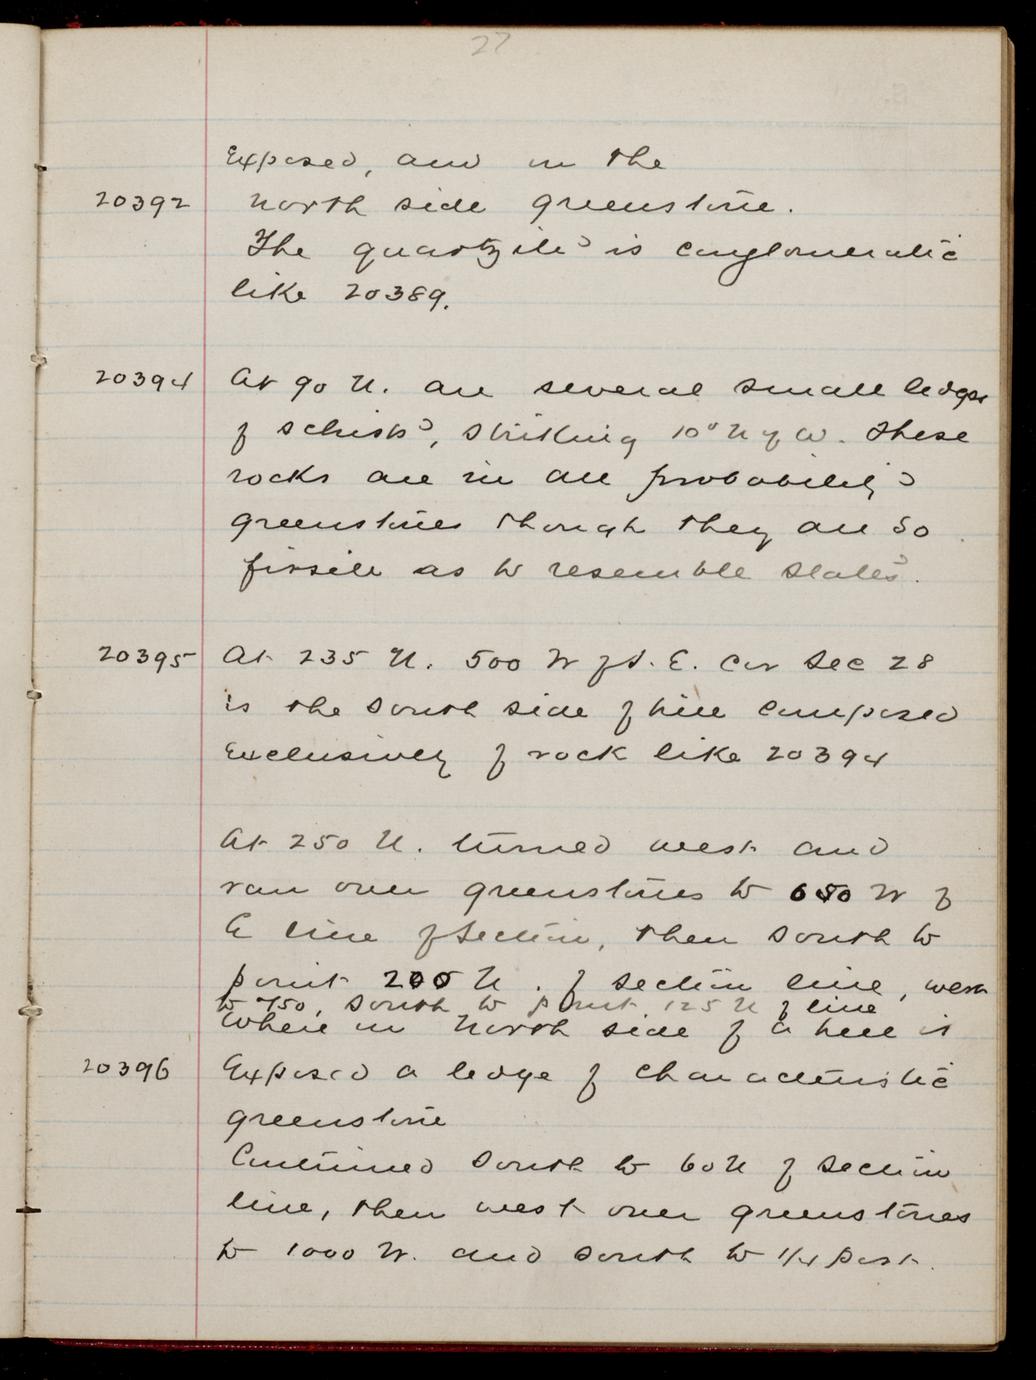 27
Exposed, and on the
20392 north side greenstone.
The quartzite is conglomeratic
like 20389.
20394 At 90 N. are several small ledges
of schists, striking 10° N of W. These
rocks are in all probability
greenstones though they are so
fissile as to resemble slates.
20395 At 235 N. 500 W of S. E. Cor Sec 28
is the south side of hill composed
Exclusively of rock like 20394
At 250 N. turned west and
ran over greenstones to 650 W of
E line of Section, then south to
point 200 N. of section line, west
to 750, south to point 125 N of line
Where on north side of a hill is
20396 Exposed a ledge of characteristic
greenstone
Continued south to 60 N of section
line, then west over greenstones
to 1000 W. and south to 1/4 post.